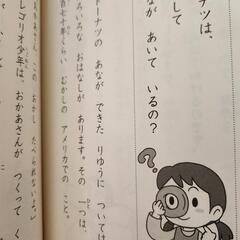 ナツは、
して
なが あいて いるの?
ーナツの あなが できた りゆうに ついては
ろいろな おはなしが あります。その 一つは、
百七十年くらい むかしの アメリカでの こと。
レゴリオ少年は、おかあさんが つくって く
?